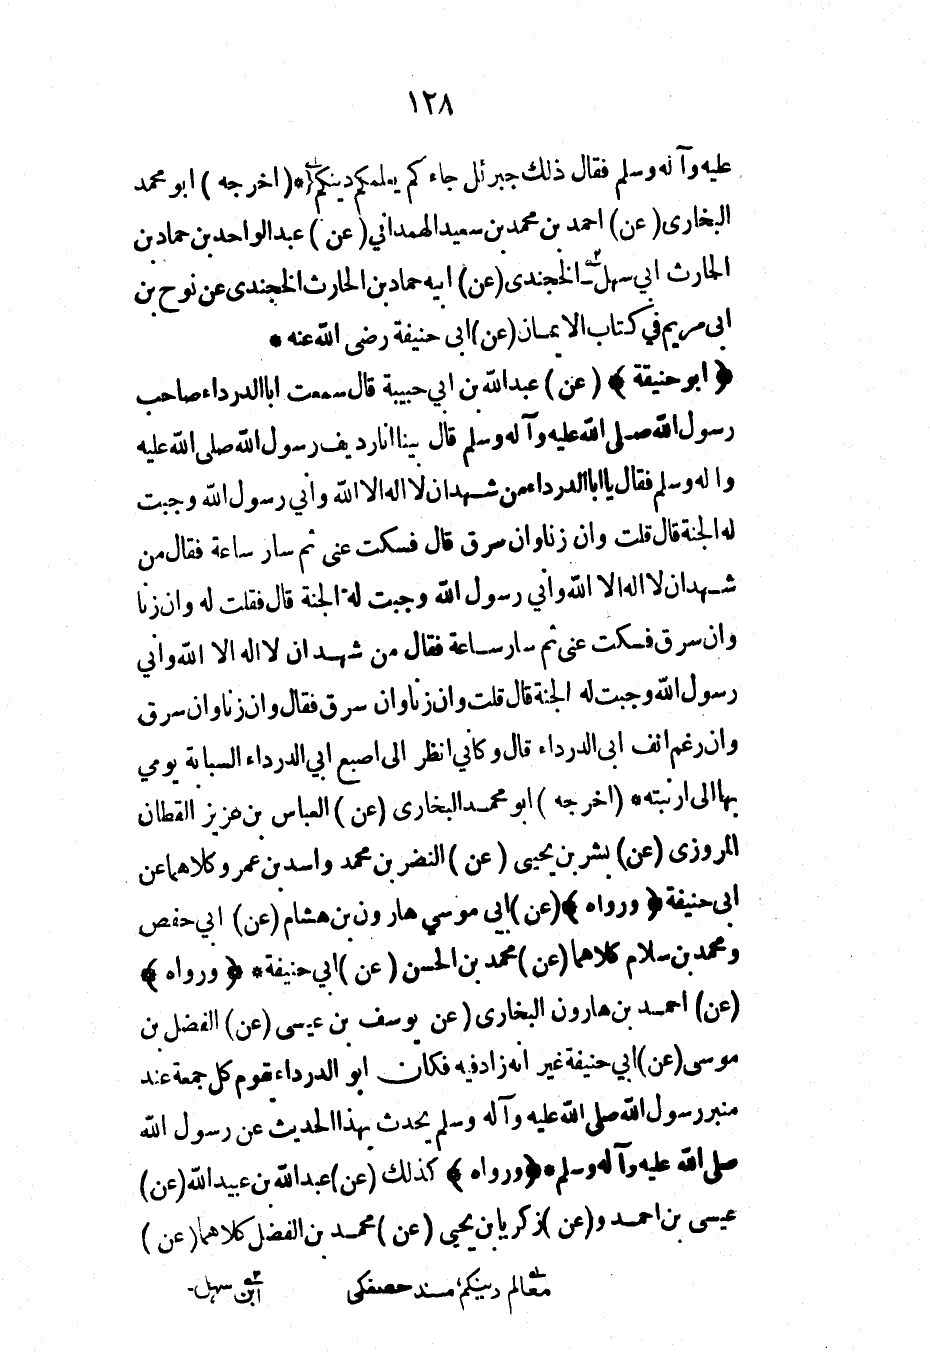 ١٢٨
عليه وآله وسلم فقال ذلك جبرئل جاءكم يعلمكم دينكم * (اخرجه) ابو محمد
البخارى (عن) احمد بن محمد بن سعيد الهمداني (عن) عبد الواحد بن حماد بن
الحارث ابي سهل الخجندى (عن) ابيه حماد بن الحارث الخجندى عن نوح بن
ابى مريم في كتاب الايمان (عن) ابى حنيفة رضى الله عنه *
﴿ ابو حنيفة ﴾ (عن) عبد الله بن ابي حبيبة قال سمعت ابا الدرداء صاحب
رسول الله صلى الله عليه وآله وسلم قال بينا انا رديف رسول الله صلى الله عليه
واله وسلم فقال يا ابا الدرداء من شهد ان لا اله الا الله واني رسول الله وجبت
له الجنة قال قلت وان زنا وان سرق قال فسكت عنى ثم سار ساعة فقال من
شهد ان لا اله الا الله واني رسول الله وجبت له الجنة قال فقلت له وان زنا
وان سرق فسكت عنى ثم سار ساعة فقال من شهد ان لا اله الا الله واني
رسول الله وجبت له الجنة قال قلت وان زنا وان سرق فقال وان زنا وان سرق
وان رغم انف ابى الدرداء قال وكأني انظر الى اصبع ابي الدرداء السبابة يومي
بها الى ارنبته * (اخرجه) ابو محمد البخارى (عن) العباس بن عزيز القطان
المروزى (عن) بشر بن يحيى (عن) النضر بن محمد واسد بن عمرو كلاهما عن
ابى حنيفة ﴿ ورواه ﴾ (عن) ابى موسي هارون بن هشام (عن) ابي حفص
ومحمد بن سلام كلاهما (عن) محمد بن الحسن (عن) ابي حنيفة * ﴿ ورواه ﴾
(عن) احمد بن هارون البخارى (عن يوسف بن عيسى (عن) الفضل بن
موسى (عن) ابي حنيفة غير انه زاد فيه فكان ابو الدرداء يقوم كل جمعة عند
منبر رسول الله صلى الله عليه وآله وسلم يحدث بهذا الحديث عن رسول الله
صلى الله عليه وآله وسلم * ﴿ ورواه ﴾ كذلك (عن) عبد الله بن عبيد الله (عن)
عيسى بن احمد و(عن) زكريا بن يحيى (عن) محمد بن الفضل كلاهما (عن)
معالم دينكم؛ مسند حصفكى ابن سهل-